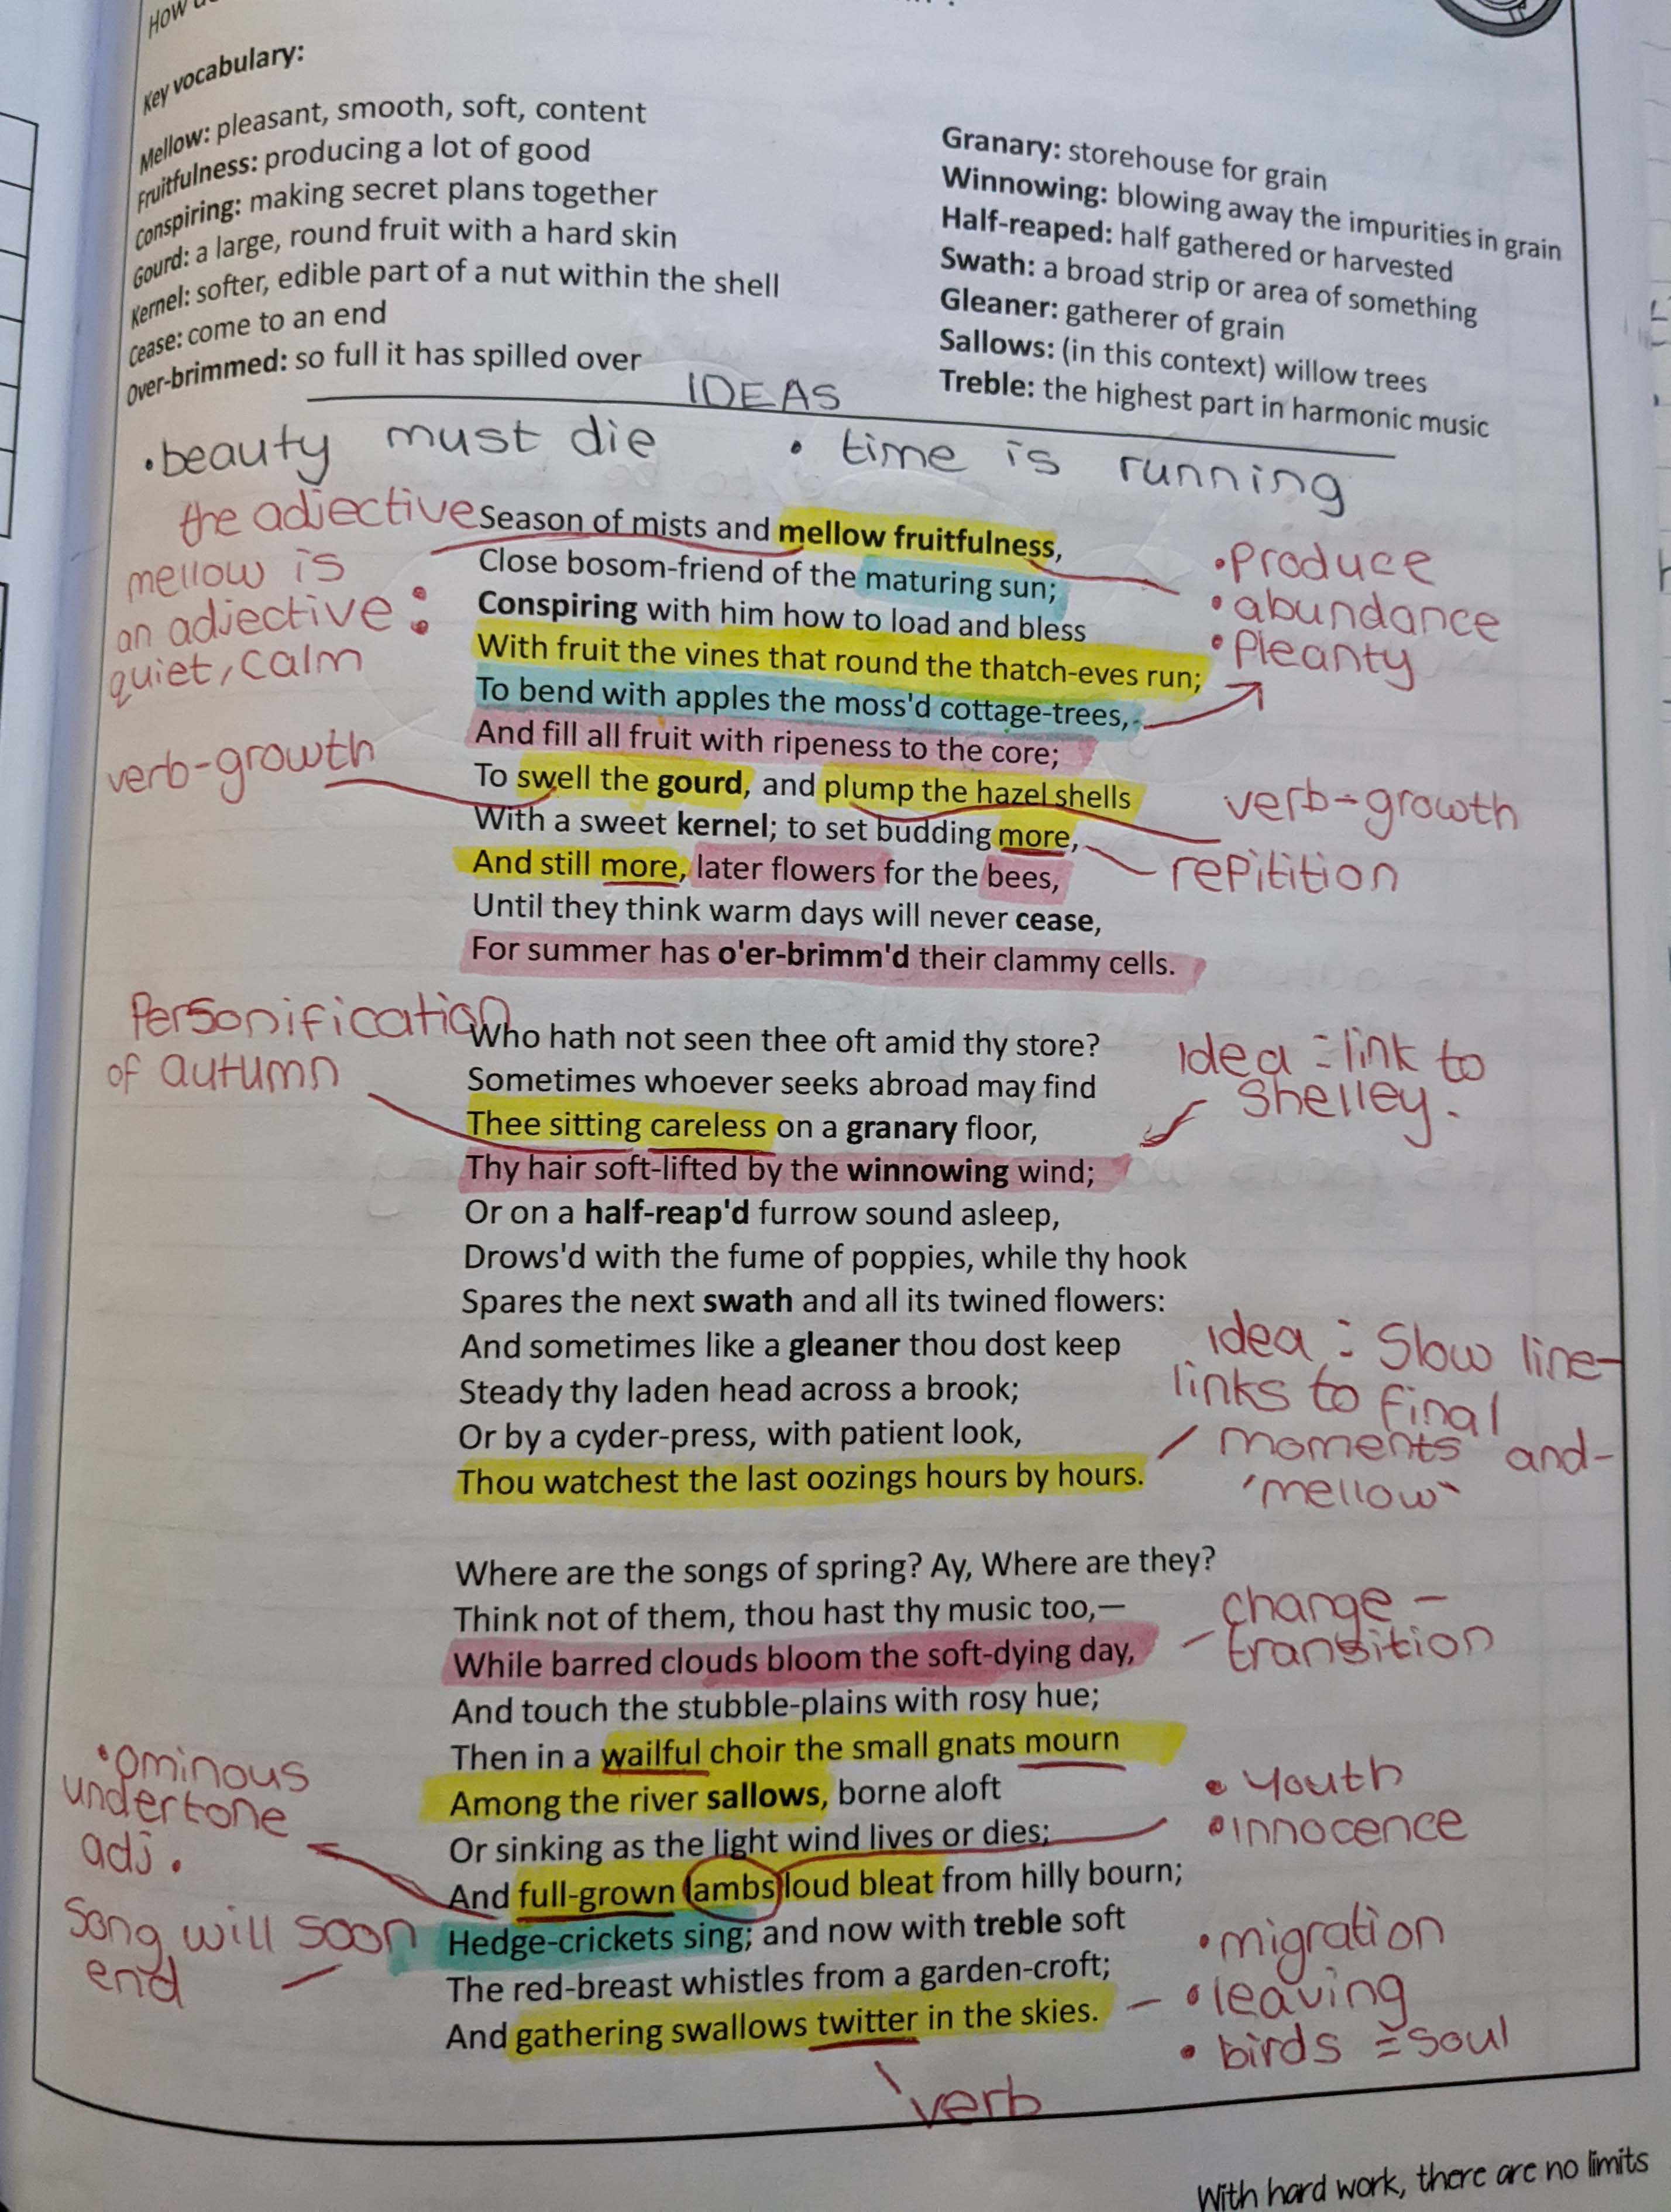 How
Key vocabulary:
Mellow: pleasant, smooth, soft, content
Fruitfulness: producing a lot of good
Conspiring: making secret plans together
Gourd: a large, round fruit with a hard skin
Kernel: softer, edible part of a nut within the shell
Cease: come to an end
Over-brimmed: so full it has spilled over
Granary: storehouse for grain
Winnowing: blowing away the impurities in grain
Half-reaped: half gathered or harvested
Swath: a broad strip or area of something
Gleaner: gatherer of grain
Sallows: (in this context) willow trees
Treble: the highest part in harmonic music
IDEAS
• beauty must die • time is running
the adjective
mellow is
an adjective:
quiet, calm
Season of mists and mellow fruitfulness,
Close bosom-friend of the maturing sun;
Conspiring with him how to load and bless
With fruit the vines that round the thatch-eves run;
To bend with apples the moss'd cottage-trees,
And fill all fruit with ripeness to the core;
To swell the gourd, and plump the hazel shells
With a sweet kernel; to set budding more,
And still more, later flowers for the bees,
Until they think warm days will never cease,
For summer has o'er-brimm'd their clammy cells.
• Produce
• abundance
• Pleanty
verb-growth
verb-growth
repitition
Personification
of autumn
Who hath not seen thee oft amid thy store?
Sometimes whoever seeks abroad may find
Thee sitting careless on a granary floor,
Thy hair soft-lifted by the winnowing wind;
Or on a half-reap'd furrow sound asleep,
Drows'd with the fume of poppies, while thy hook
Spares the next swath and all its twined flowers:
And sometimes like a gleaner thou dost keep
Steady thy laden head across a brook;
Or by a cyder-press, with patient look,
Thou watchest the last oozings hours by hours.
Idea = link to
Shelley.
Idea: Slow line-
links to final
moments and-
'mellow'
Where are the songs of spring? Ay, Where are they?
Think not of them, thou hast thy music too,—
While barred clouds bloom the soft-dying day,
And touch the stubble-plains with rosy hue;
Then in a wailful choir the small gnats mourn
Among the river sallows, borne aloft
Or sinking as the light wind lives or dies;
And full-grown lambs loud bleat from hilly bourn;
Hedge-crickets sing; and now with treble soft
The red-breast whistles from a garden-croft;
And gathering swallows twitter in the skies.
change -
transition
• ominous
undertone
adj.
Song will soon
end
• Youth
• innocence
• migration
• leaving
• birds = soul
verb
With hard work, there are no limits